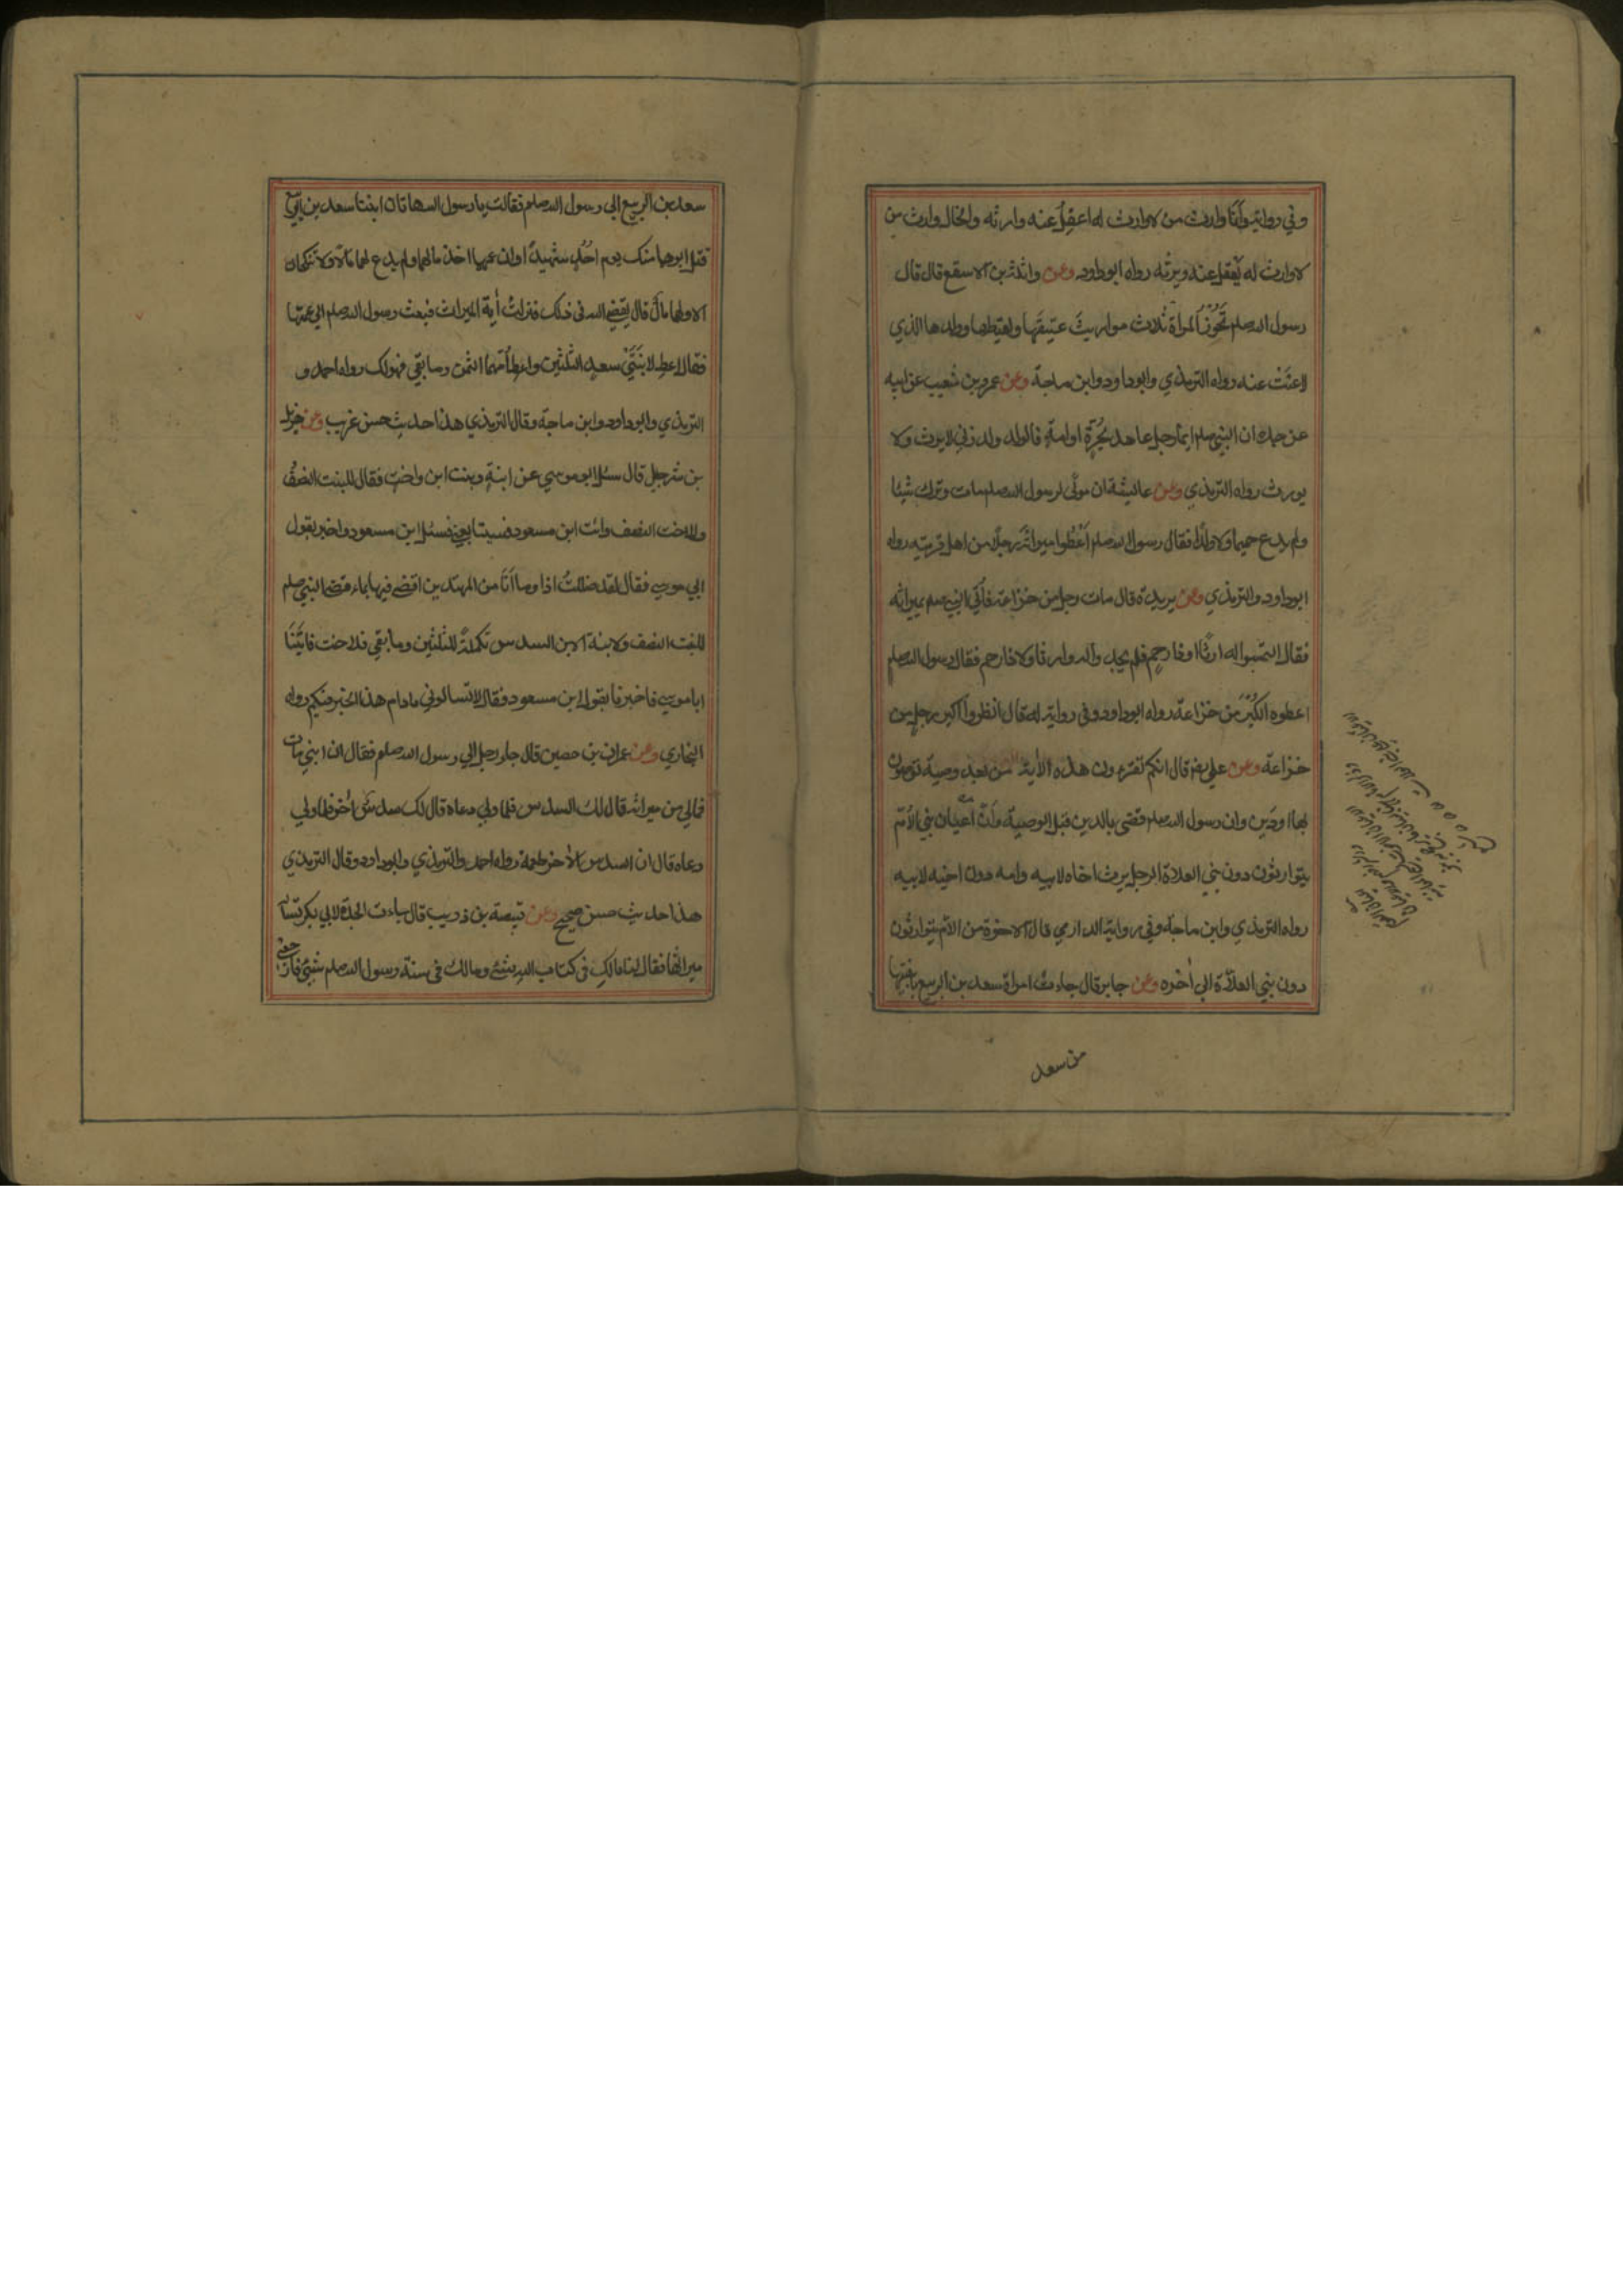 وفي رواية وأنا وارث من لا وارث له اعقِلُ عنه وارثه والخال وارث من
لا وارث له يَعقل عنه ويرثه رواه ابوداود وعن واثلة بن الاسقع قال قال
رسول الله صلعم تَحُوزُ المرأة ثلاث مواريثَ عتيقَها ولقيطها وولدها الذي
لاعنَتْ عنه رواه الترمذي وابوداود وابن ماجة وعن عمرو بن شعيب عن ابيه
عن جده ان النبي صلعم ايما رجل عاهد بحُرَّة او امةٍ فالولد ولد زنى لا يرث ولا
يورث رواه الترمذي وعن عائشة ان مولًى لرسول الله صلعم مات وترك شيئا
ولم يدع حميما ولا ولدًا فقال رسول الله صلعم اَعْطُوا ميراثَه رجلًا من اهل قريته رواه
ابوداود والترمذي وعن بريدة قال مات رجل من خزاعة فاُتي النبي صلعم بميراثه
فقال التمسوا له وارثًا او ذا رحِمٍ فلم يجدوا له وارثا ولا ذا رحم فقال رسول الله صلعم
اعطوه الكُبْرَ من خزاعة رواه ابوداود وفي رواية له قال انظروا اكبر رجل من
خزاعة وعن علي رض قال انكم تقرءون هذه الآية من بعد وصية توصون
بها او دَين وان رسول الله صلعم قضى بالدين قبل الوصية وأنّ اَعْيان بني الأُمّ
يتوارثون دون بني العلات الرجل يرث اخاه لابيه وامه دون اخيه لابيه
رواه الترمذي وابن ماجة وفي رواية الدارمي قال الاخوة من الأم يتوارثون
دون بني العلاّت الى اخره وعن جابر قال جاءت امراة سعد بن الربيع بابنتيها
من سعد
سعد بن الربيع الى رسول الله صلعم فقالت يا رسول الله هاتان ابنتا سعد بن الربيع
قتل ابوهما معك يوم اُحُدٍ شهيدًا وان عمهما اخذ مالهما ولم يدع لهما مالًا ولا تنكحان
الا ولهما مالٌ قال يقضي الله في ذلك فنزلتْ أية الميراث فبعث رسول الله صلعم الى عمهما
فقال اعطِ لابنَتَيْ سعدٍ الثلثين واعطِ اُمّهما الثمن وما بقي فهو لك رواه احمد و
الترمذي وابوداود وابن ماجة وقال الترمذي هذا حديث حسن غريب وعن هزيل
بن شرحبيل قال سئل ابو موسي عن ابنةٍ وبنت ابن واختٍ فقال للبنت النصفُ
وللاخت النصف وائت ابن مسعود فسيتابعني فسئل ابن مسعود واخبر بقول
ابي موسي فقال لقد ضللتُ اذا وما أَنَا من المهتدين اقضي فيها بما قضى النبي صلعم
للبنت النصف ولابنة الابن السدس تكملةً للثلثين وما بقي فللاخت فاتَيْنَا
ابا موسي فاخبرنا بقول ابن مسعود فقال لا تسالوني ما دام هذا الحَبْر فيكم رواه
البخاري وعن عمران بن حصين قال جاء رجل الي رسول الله صلعم فقال ان ابني مات
فمالي من ميراثه قال لك السدس فلما ولي دعاه قال لك سدس اُخر فلما ولي
دعاه قال ان السدس الأخر طعمة رواه احمد والترمذي وابوداود وقال الترمذي
هذا حديث حسن صحيح وعن قبيصة بن ذويب قال جاءت الجدة لابي بكر تسأله
ميراثها فقال لها مالكِ في كتاب الله شيٌ ومالك في سنة رسول الله صلعم شيئٌ فارجعي